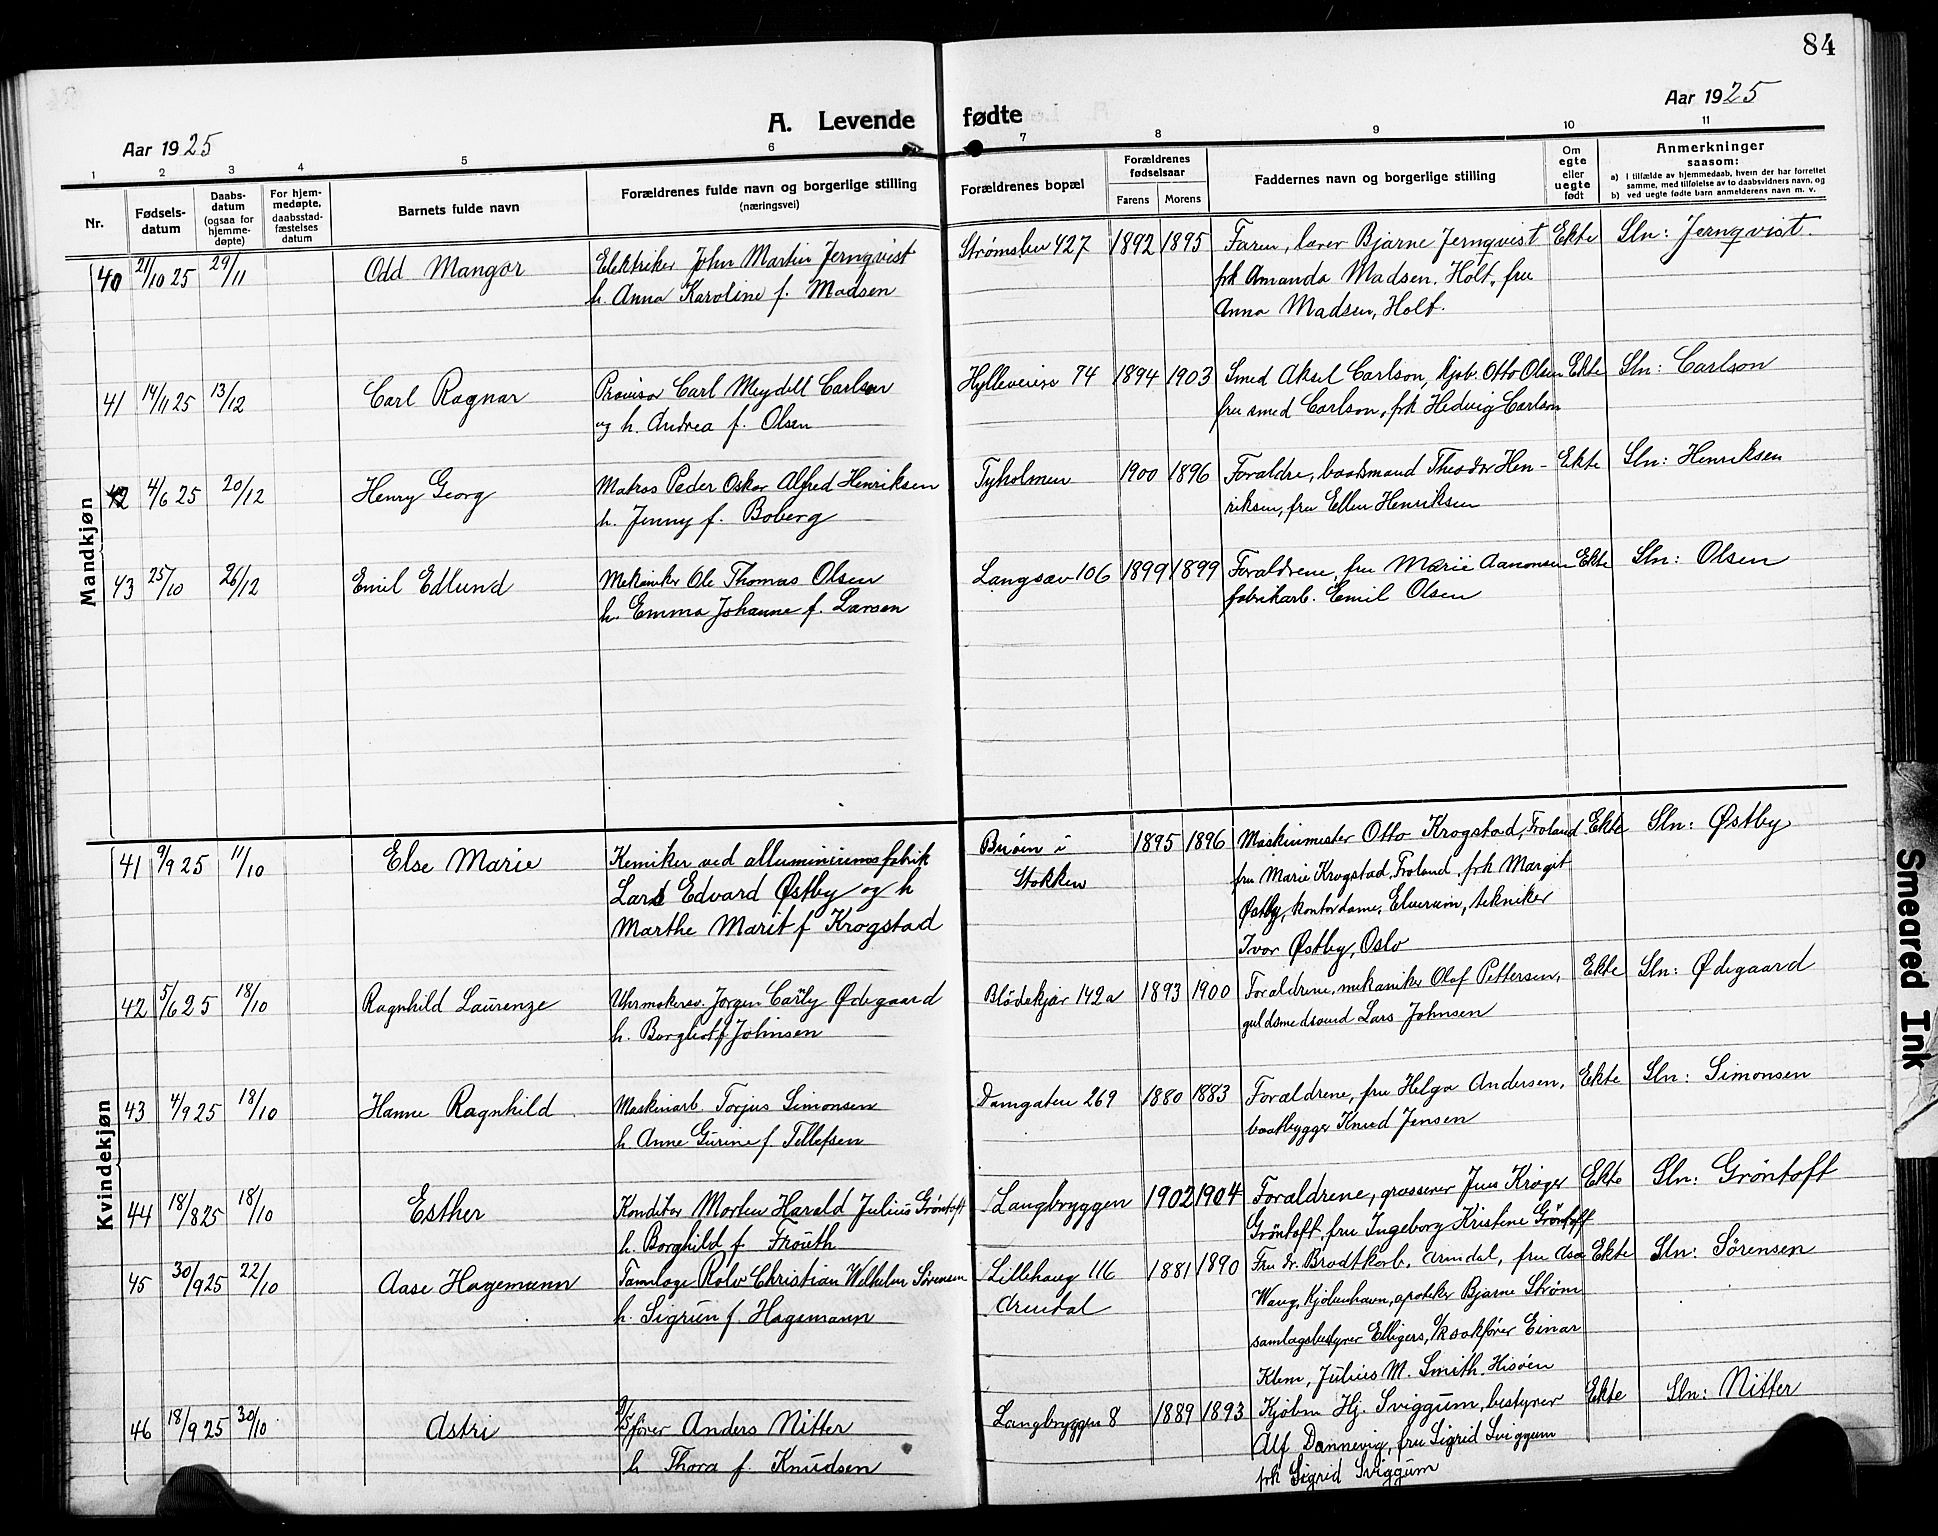 84
Aar 1925
A. Levende fødte
Aar 1925
1 2 3 4 5 6 7 8 9 10 11
Nr.
Fødsels-
datum
Daabs-
datum
(ogsaa for
hjemme-
døpte)
For hjem-
medøpte,
daabsstad-
fæstelses
datum
Barnets fulde navn
Forældrenes fulde navn og borgerlige stilling
(næringsvei)
Forældrenes bopæl
Forældrenes
fødselsaar
Farens Morens
Faddernes navn og borgerlige stilling
Om
egte
eller
uegte
født
Anmerkninger
saasom:
a) I tilfælde av hjemmedaab, hvem der har forrettet
samme, med tilføielse av to daabsvidners navn, og
b) ved uegte fødte barn anmelderens navn m. v.
Mandkjøn
40 21/10 25 29/11 Odd Mangor Elektriker John Martin Jernqvist Strømsbu 427 1892 1895 Faren, lærer Bjarne Jernqvist Ekte Sln: Jernqvist.
h. Anna Karoline f. Madsen frk Amanda Madsen, Holt, fru
Anna Madsen, Holt.
41 14/11 25 13/12 Carl Ragnar Provisor Carl Meydell Carlson Hylleveien 74 1894 1903 Smed Aksel Carlson, kjøb. Otto Olsen Ekte Sln: Carlson
og h. Andrea f. Olsen fru smed Carlson, frk Hedvig Carlson
42 4/6 25 20/12 Henry Georg Matros Peder Oskar Alfred Henriksen Tyholmen 1900 1896 Foraldre, baatsmand Theodor Hen- Ekte Sln: Henriksen
h. Jenny f. Boberg riksen, fru Ellen Henriksen
43 25/10 26/12 Emil Edlund Mekaniker Ole Thomas Olsen Langsæv 106 1899 1899 Foraldrene, fru Marie Aanonsen Ekte Sln: Olsen
h. Emma Johanne f. Larsen fabrikarb. Emil Olsen
Kvindekjøn
41 9/9 25 11/10 Else Marie Kemiker ved alluminiumsfabrik Buøen i 1895 1896 Maskinmester Otto Krogstad, Froland Ekte Sln: Østby
Lars Edvard Østby og h Stokken fru Marie Krogstad, Froland, frk Margit
Marthe Marit f Krogstad Østby, kontordame, Elverum, tekniker
Ivar Østby, Oslo
42 5/6 25 18/10 Ragnhild Laurenze Uhrmakersv. Jørgen Carly Ødegaard Blödekjær 142a 1893 1900 Foraldrene, mekaniker Olaf Pettersen, Ekte Sln: Ødegaard
h. Borghot f Johnsen guldsmedsvend Lars Johnsen
43 4/9 25 18/10 Hanne Ragnhild Maskinarb Torjus Simonsen Damgaten 269 1880 1883 Foraldrene, fru Helga Andersen, Ekte Sln: Simonsen
h. Anne Gurine f Tellefsen baatbygger Knud Jensen
44 18/8 25 18/10 Esther Konditor Morten Harald Julius Gröntoft Langbryggen 1902 1904 Foraldrene, grosserer Jens Krøger Ekte Sln: Gröntoft
h. Borghild f Frouth Gröntoft, fru Ingeborg Kristine Gröntoft
45 30/9 25 22/10 Aase Hagemann Tannlæge Rolv Christian Wilhelm Sörensen Lillehaug 116 1881 1890 Fru dr. Brodtkorb, Arendal, fru Asa Ekte Sln: Sörensen
h. Sigrun f. Hagemann Arendal Wang, Kjøbenhavn, apoteker Bjarne Strøm
samlagsbestyrer Elligers, O/R sakfører Einar
Klem, Julius M. Smith, Hisöen
46 18/9 25 30/10 Astri S/fører Anders Nitter Langbryggen 8 1889 1893 Kjöbm Hj. Sviggum, bestyrer Ekte Sln: Nitter
h Thora f. Knudsen Alf Dannevig, fru Sigrid Sviggum
frk Sigrid Sviggum
Smeared Ink